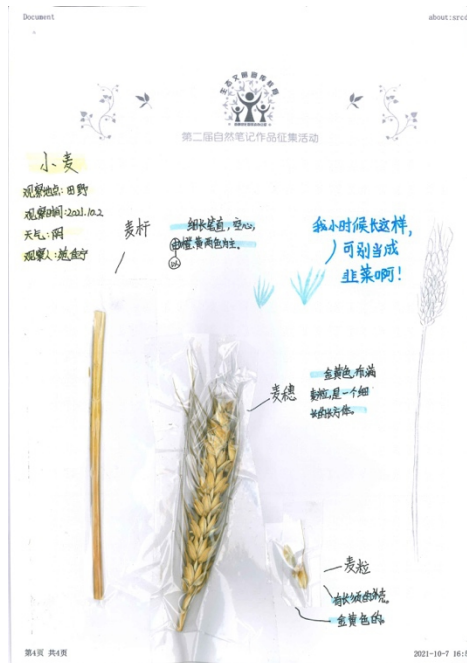 Document
about:srcd
生态文明宣传教育
第二届自然笔记作品征集活动
小麦
观察地点：田野
观察时间：2021.10.2
天气：阴
观察人：
麦杆
细长笔直，空心，
由橙、黄两色为主。
以
我小时候长这样，
可别当成
韭菜啊！
麦穗
金黄色，布满
麦粒，是一个细
长的长方体。
麦粒
有长须的外壳。
金黄色的。
第4页 共4页
2021-10-7 16:5